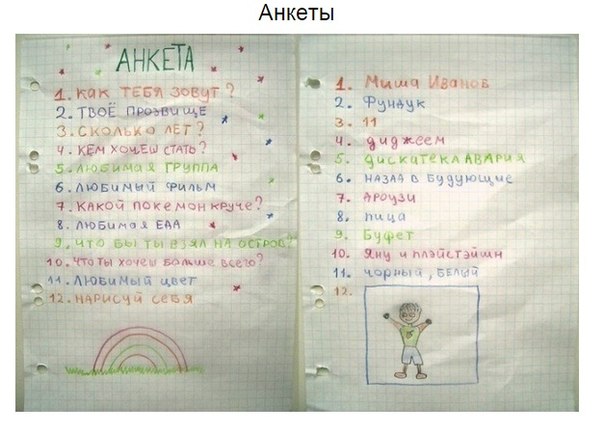 Анкеты
АНКЕТА
1. КАК ТЕБЯ ЗОВУТ?
2. ТВОЁ ПРОЗВИЩЕ
3. СКОЛЬКО ЛЕТ?
4. КЕМ ХОЧЕШ СТАТЬ?
5. ЛЮБИМАЯ ГРУППА
6. ЛЮБИМЫЙ ФИЛЬМ
7. КАКОЙ ПОКЕМОН КРУЧЕ?
8. ЛЮБИМАЯ ЕДА
9. ЧТО БЫ ТЫ ВЗЯЛ НА ОСТРОВ?
10. ЧТО ТЫ ХОЧЕШ БОЛЬШЕ ВСЕГО?
11. ЛЮБИМЫЙ ЦВЕТ
12. НАРИСУЙ СЕБЯ
1. Миша Иванов
2. Фундук
3. 11
4. диджеем
5. ДИСКАТЕКА АВАРИЯ
6. НАЗАД В БУДУЮЩИЕ
7. ДРОУЗИ
8. пица
9. Буфет
10. Яну и плэйстэйшн
11. чорный, БЕЛЫЙ
12.